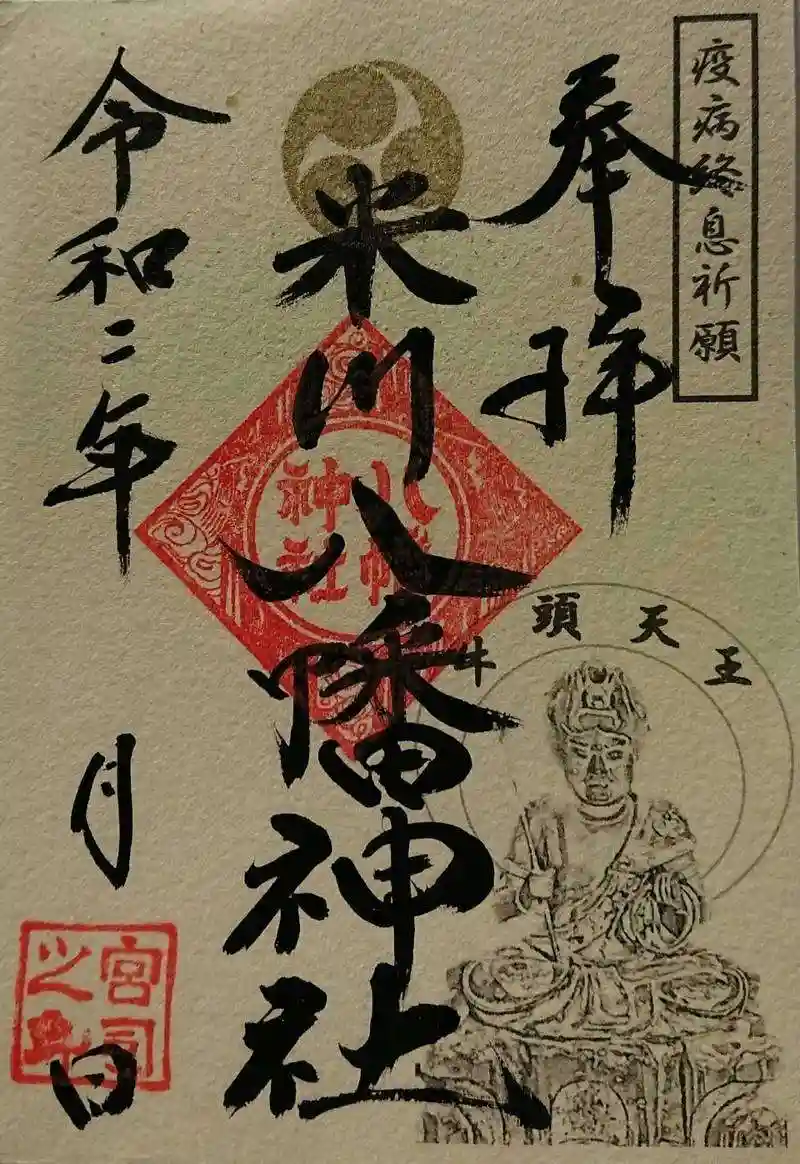 疫病終息祈願
奉拝
米川八幡神社
八幡
神社
牛頭天王
令和二年 月 日
宮司
之印